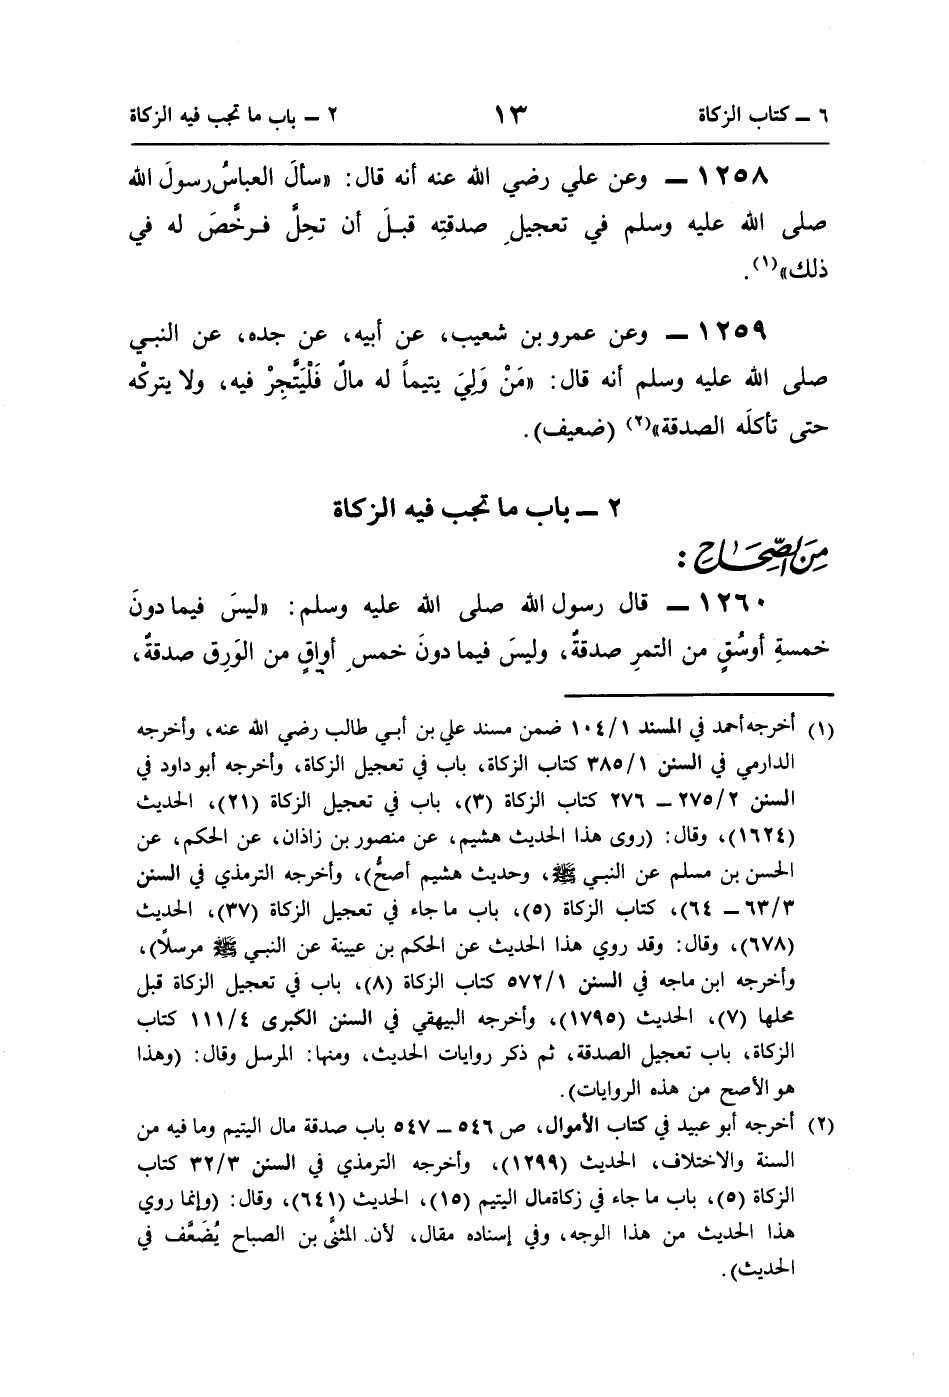 ٦ ـ كتاب الزكاة ١٣ ٢ ـ باب ما تجب فيه الزكاة
١٢٥٨ ـ وعن علي رضي الله عنه أنه قال: «سألَ العباسُ رسولَ الله
صلى الله عليه وسلم في تعجيلِ صدقتِه قبلَ أن تحِلَّ فرخَّصَ له في
ذلك»(١).
١٢٥٩ ـ وعن عمرو بن شعيب، عن أبيه، عن جده، عن النبي
صلى الله عليه وسلم أنه قال: «مَنْ وَلِيَ يتيماً له مالٌ فَلْيَتَّجِرْ فيه، ولا يتركْه
حتى تأكلَه الصدقة»(٢) (ضعيف).
٢ ـ باب ما تجب فيه الزكاة
مِنَ الصِّحَاحِ:
١٢٦٠ ـ قال رسول الله صلى الله عليه وسلم: «ليسَ فيما دونَ
خمسةِ أوسُقٍ من التمرِ صدقةٌ، وليسَ فيما دونَ خمسِ أواقٍ من الوَرِق صدقةٌ،
(١) أخرجه أحمد في المسند ١٠٤/١ ضمن مسند علي بن أبي طالب رضي الله عنه، وأخرجه
الدارمي في السنن ٣٨٥/١ كتاب الزكاة، باب في تعجيل الزكاة، وأخرجه أبو داود في
السنن ٢٧٥/٢ ـ ٢٧٦ كتاب الزكاة (٣)، باب في تعجيل الزكاة (٢١)، الحديث
(١٦٢٤)، وقال: (روى هذا الحديث هشيم، عن منصور بن زاذان، عن الحكم، عن
الحسن بن مسلم عن النبي ﷺ، وحديث هشيم أصحُّ)، وأخرجه الترمذي في السنن
٦٣/٣ ـ ٦٤)، كتاب الزكاة (٥)، باب ما جاء في تعجيل الزكاة (٣٧)، الحديث
(٦٧٨)، وقال: وقد روي هذا الحديث عن الحكم بن عيينة عن النبي ﷺ مرسلاً)،
وأخرجه ابن ماجه في السنن ٥٧٢/١ كتاب الزكاة (٨)، باب في تعجيل الزكاة قبل
محلها (٧)، الحديث (١٧٩٥)، وأخرجه البيهقي في السنن الكبرى ١١١/٤ كتاب
الزكاة، باب تعجيل الصدقة، ثم ذكر روايات الحديث، ومنها: المرسل وقال: (وهذا
هو الأصح من هذه الروايات).
(٢) أخرجه أبو عبيد في كتاب الأموال، ص ٥٤٦ ـ ٥٤٧ باب صدقة مال اليتيم وما فيه من
السنة والاختلاف، الحديث (١٢٩٩)، وأخرجه الترمذي في السنن ٣٢/٣ كتاب
الزكاة (٥)، باب ما جاء في زكاة مال اليتيم (١٥)، الحديث (٦٤١)، وقال: (وإنما روي
هذا الحديث من هذا الوجه، وفي إسناده مقال، لأن المثنَّى بن الصباح يُضَعَّف في
الحديث).